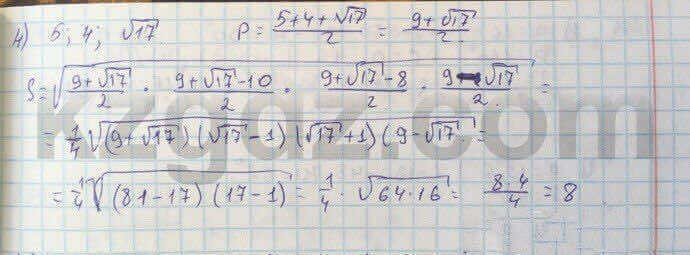 4) 5; 4; √17 P = (5+4+√17)/2 = (9+√17)/2
S = √((9+√17)/2 · (9+√17-10)/2 · (9+√17-8)/2 · (9-√17)/2) =
= 1/4 √((9+√17)(√17-1)(√17+1)(9-√17)) =
= 1/4 √((81-17)(17-1)) = 1/4 · √(64·16) = (8·4)/4 = 8
kzgdz.com